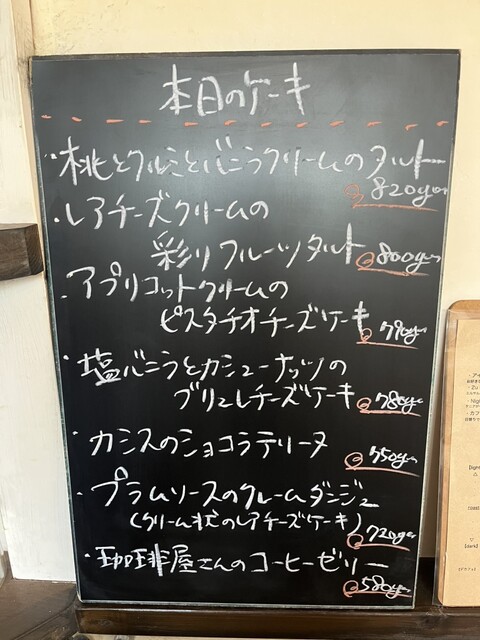 本日のケーキ
・桃とクルミとバニラクリームのタルト
@820yen
・レアチーズクリームの
彩りフルーツタルト @800yen
・アプリコットクリームの
ピスタチオチーズケーキ
@790yen
・塩バニラとカシューナッツの
ブリュレチーズケーキ @780yen
・カシスのショコラテリーヌ
@750yen
・プラムソースのクレームダンジュ
(クリーム状のレアチーズケーキ) @720yen
・珈琲屋さんのコーヒーゼリー
@580yen